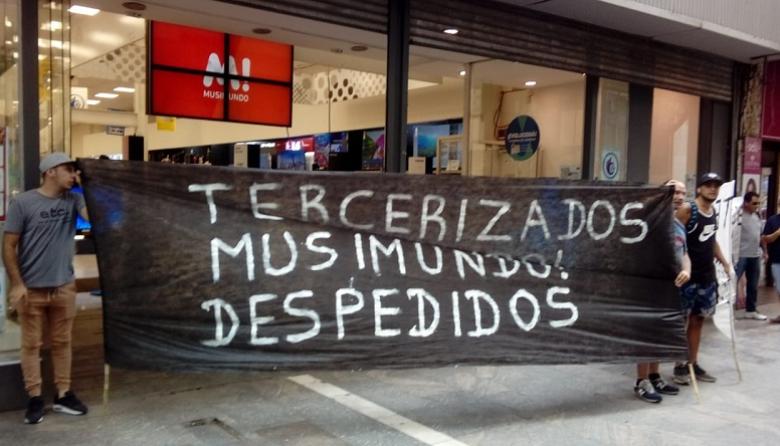 M!
MUSIMUNDO
TERCERIZADOS
MUSIMUNDO!
DESPEDIDOS
etc